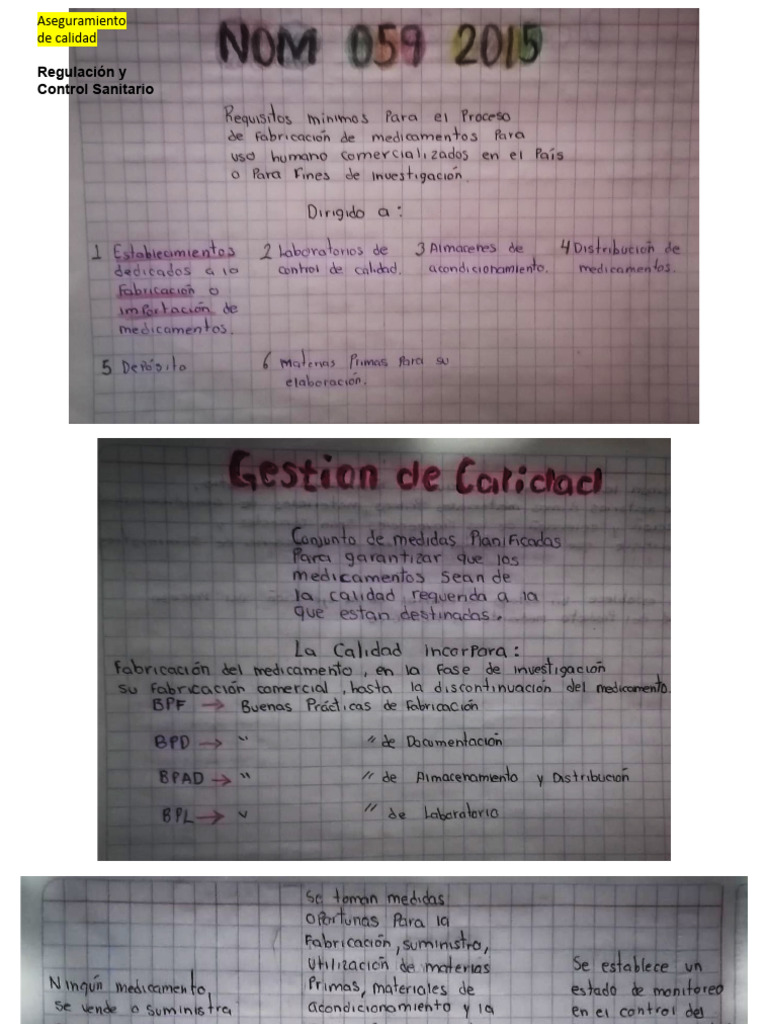 Aseguramiento
de calidad
Regulación y
Control Sanitario
NOM 059 2015
Requisitos mínimos Para el Proceso
de fabricación de medicamentos Para
uso humano comercializados en el País
o Para Fines de investigación.
Dirigido a:
1 Establecimientos
dedicados a la
Fabricación o
importación de
medicamentos.
2 Laboratorios de
control de calidad.
3 Almacenes de
acondicionamiento.
4 Distribución de
medicamentos.
5 Depósito
6 Materias Primas Para su
elaboración.
Gestion de Calidad
Conjunto de medidas Planificadas
Para garantizar que los
medicamentos sean de
la calidad requerida a la
que estan destinadas.
La Calidad incorpora:
Fabricación del medicamento, en la Fase de investigación
su fabricación comercial, hasta la discontinuación del medicamento.
BPF → Buenas Prácticas de Fabricación
BPD → " " de Documentación
BPAD → " " de Almacenamiento y Distribución
BPL → " " de Laboratorio
Ningún medicamento,
se vende o suministra
Se toman medidas
oportunas Para la
Fabricación, suministro,
utilización de materias
Primas, materiales de
acondicionamiento y la
Se establece un
estado de monitoreo
en el control del